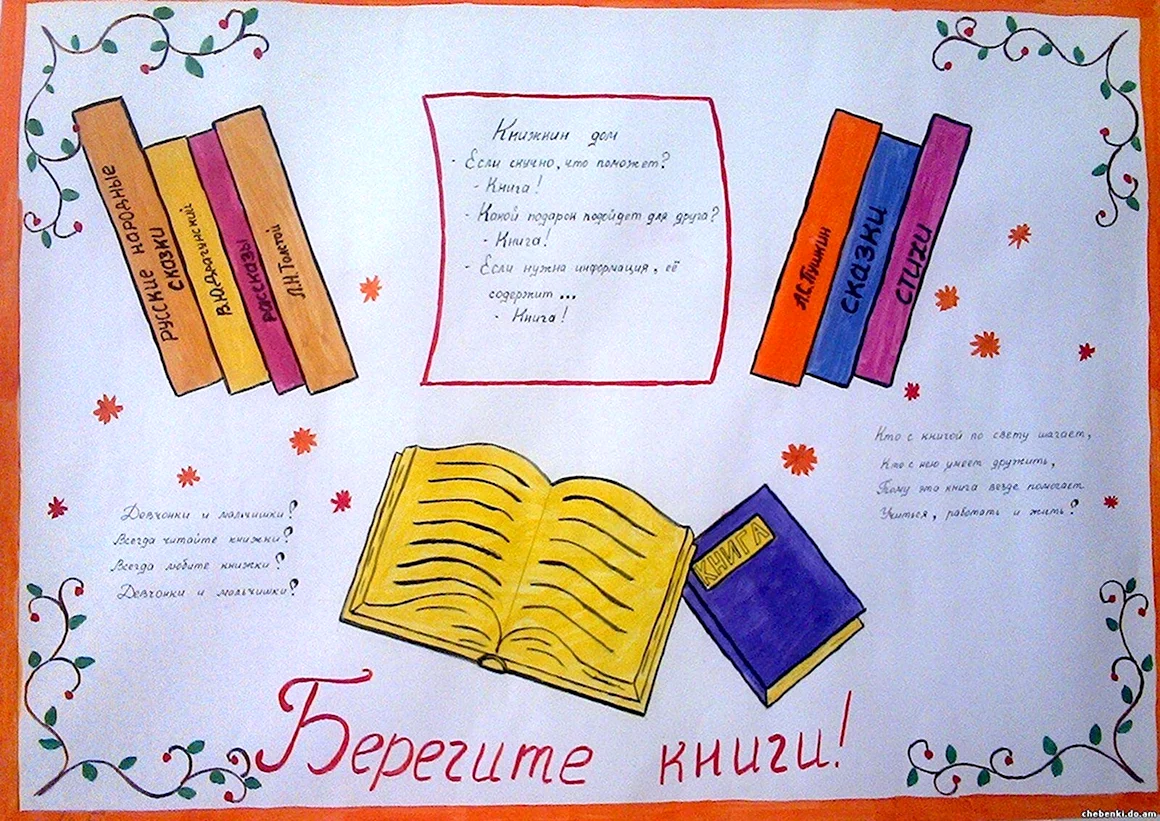 Русские народные
сказки
В.Ю.Драгунский
рассказы
Л.Н.Толстой
Книжкин дом
- Если скучно, что поможет?
- Книга!
- Какой подарок подойдет для друга?
- Книга!
- Если нужна информация, её
содержит ...
- Книга!
А.С.Пушкин
сказки
стихи
Девчонки и мальчишки?
Всегда читайте книжки?
Всегда любите книжки?
Девчонки и мальчишки?
Кто с книгой по свету шагает,
Кто с нею умеет дружить,
Тому эта книга везде помогает
Учиться, работать и жить?
КНИГА
Берегите книги!
chebenki.do.am